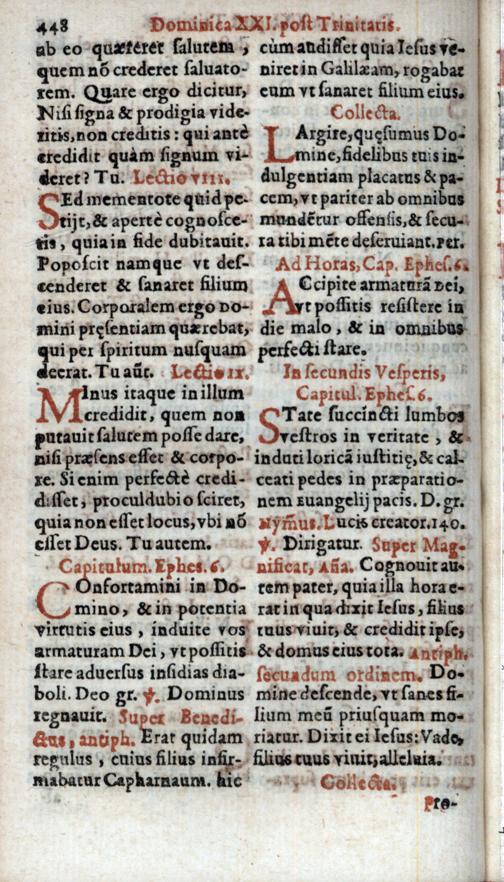 448 Dominica XXI. post Trinitatis.
ab eo quæreret salutem,
quem nō crederet saluato-
rem. Quare ergo dicitur,
Nisi signa & prodigia vide-
ritis, non creditis: qui antè
credidit quàm signum vi-
deret? Tu. Lectio viii.
SEd mementote quid pe-
tijt, & apertè cognosce-
tis, quia in fide dubitauit.
Poposcit namque vt des-
cenderet & sanaret filium
eius. Corporalem ergo Do-
mini pręsentiam quærebat,
qui per spiritum nusquam
deerat. Tu aūt. Lectio ix.
MInus itaque in illum
credidit, quem non
putauit salutem posse dare,
nisi præsens esset & corpo-
re. Si enim perfectè credi-
disset, proculdubio sciret,
quia non esset locus, vbi nō
esset Deus. Tu autem.
Capitulum. Ephes. 6.
COnfortamini in Do-
mino, & in potentia
virtutis eius, induite vos
armaturam Dei, vt possitis
stare aduersus insidias dia-
boli. Deo gr. ℣. Dominus
regnauit. Super Benedi-
ctus, antiph. Erat quidam
regulus, cuius filius infir-
mabatur Capharnaum. hic
cùm audisset quia Iesus ve-
niret in Galilæam, rogabat
eum vt sanaret filium eius.
Collecta.
LArgire, quęsumus Do-
mine, fidelibus tuis in-
dulgentiam placatus & pa-
cem, vt pariter ab omnibus
mundētur offensis, & secu-
ra tibi mēte deseruiant. Per.
Ad Horas, Cap. Ephes. 6.
ACcipite armaturā Dei,
vt possitis resistere in
die malo, & in omnibus
perfecti stare.
In secundis Vesperis,
Capitul. Ephes. 6.
STate succincti lumbos
vestros in veritate, &
induti loricā iustitię, & cal-
ceati pedes in præparatio-
nem Euangelij pacis. D. gr.
Hymũs. Lucis creator. 140.
℣. Dirigatur. Super Mag-
nificat, Aña. Cognouit au-
tem pater, quia illa hora e-
rat in qua dixit Iesus, filius
tuus viuit, & credidit ipse,
& domus eius tota. Antiph.
secundum ordinem. Do-
mine descende, vt sanes fi-
lium meū priusquam mo-
riatur. Dixit ei Iesus: Vade,
filius tuus viuit, alleluia.
Collecta.
Pro-